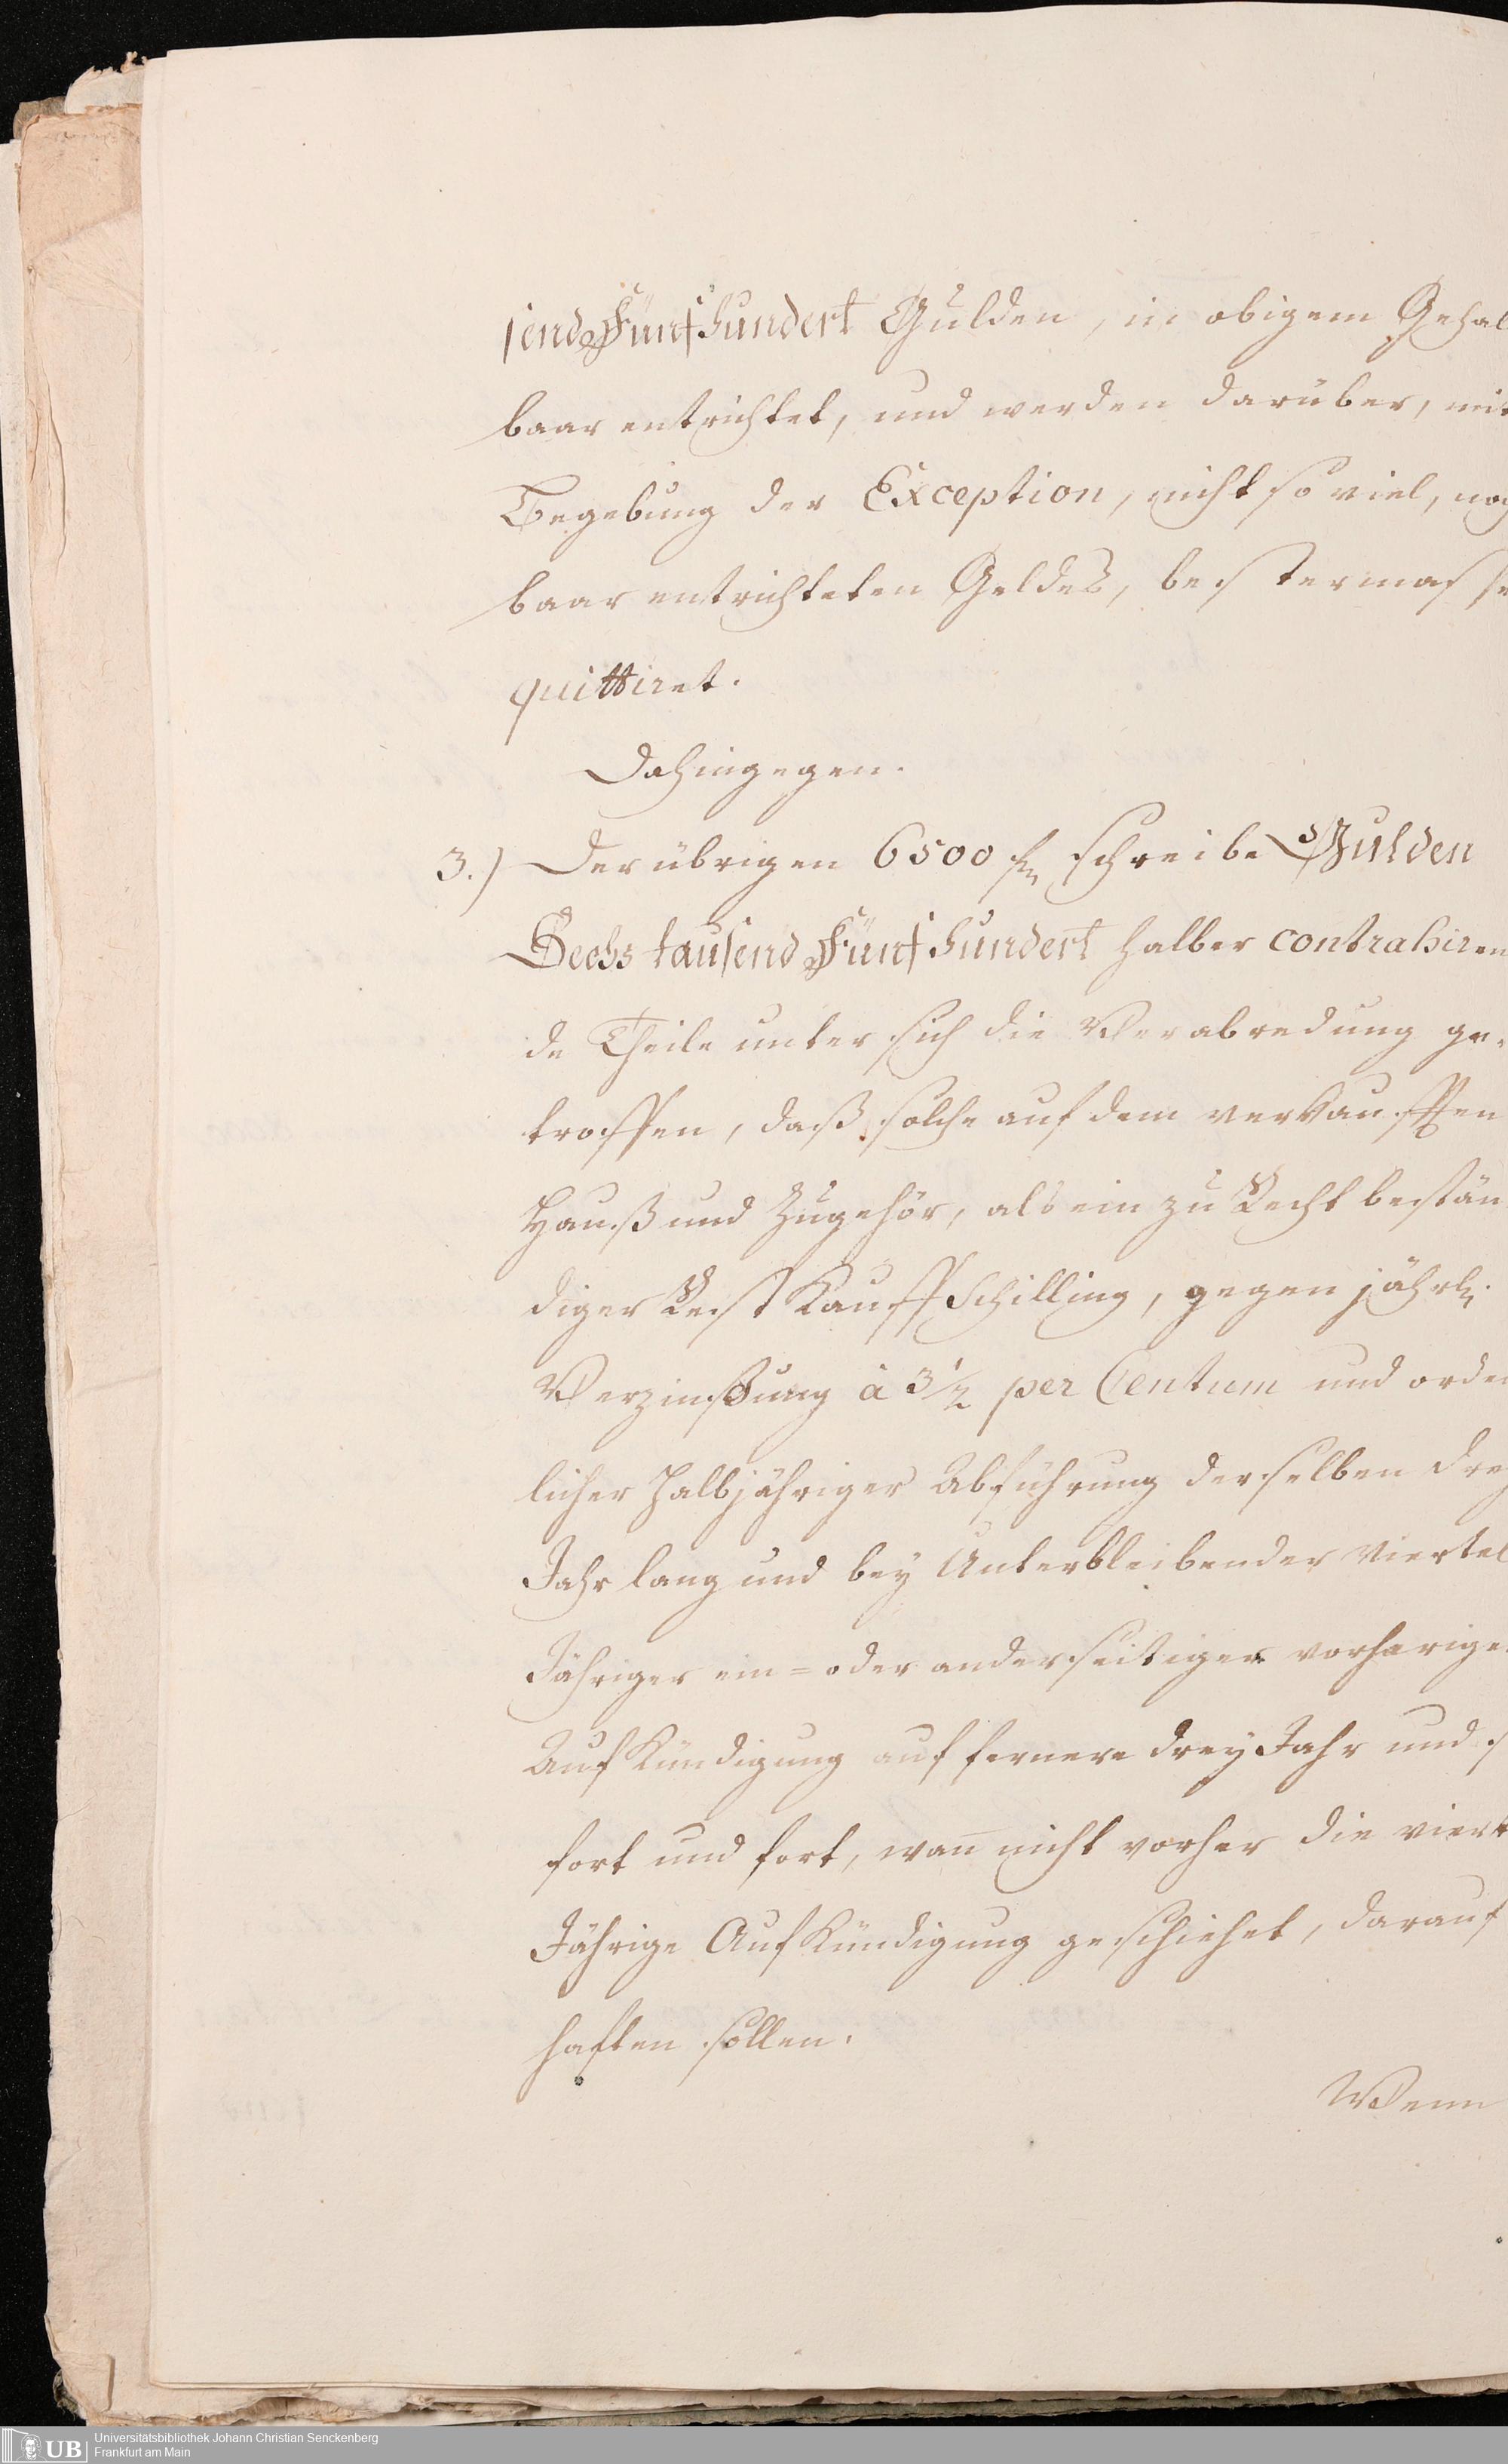 send Fünf hundert Gulden, in obigem Gehal
baar entrichtet, und werden darüber, mit
Begebung der Exception, nicht so viel, noch
baar entrichteten Geldes, bestermasse
quittiret.
Dahingegen.
3.) Der übrigen 6500 fl schreibe Gulden
Sechs tausend Fünf hundert halber contrahiren
de Theile unter sich die Verabredung ge-
troffen, daß solche auf dem verkaufften
Hauß und Zugehör, als ein zu Recht bestän
diger Rest Kauff Schilling, gegen jährl.
Verzinßung à 3 1/2 per Centum und orden
licher Halbjähriger Abführung derselben drey
Jahr lang und bey Unterbleibender viertel
Jähriger ein= oder anderseitiger vorherige
Aufkündigung auf fernere drey Jahr und s
fort und fort, wañ nicht vorher die viert
Jährige Aufkündigung geschiehet, darauf
haften sollen.
Wenn
UB
Universitätsbibliothek Johann Christian Senckenberg
Frankfurt am Main